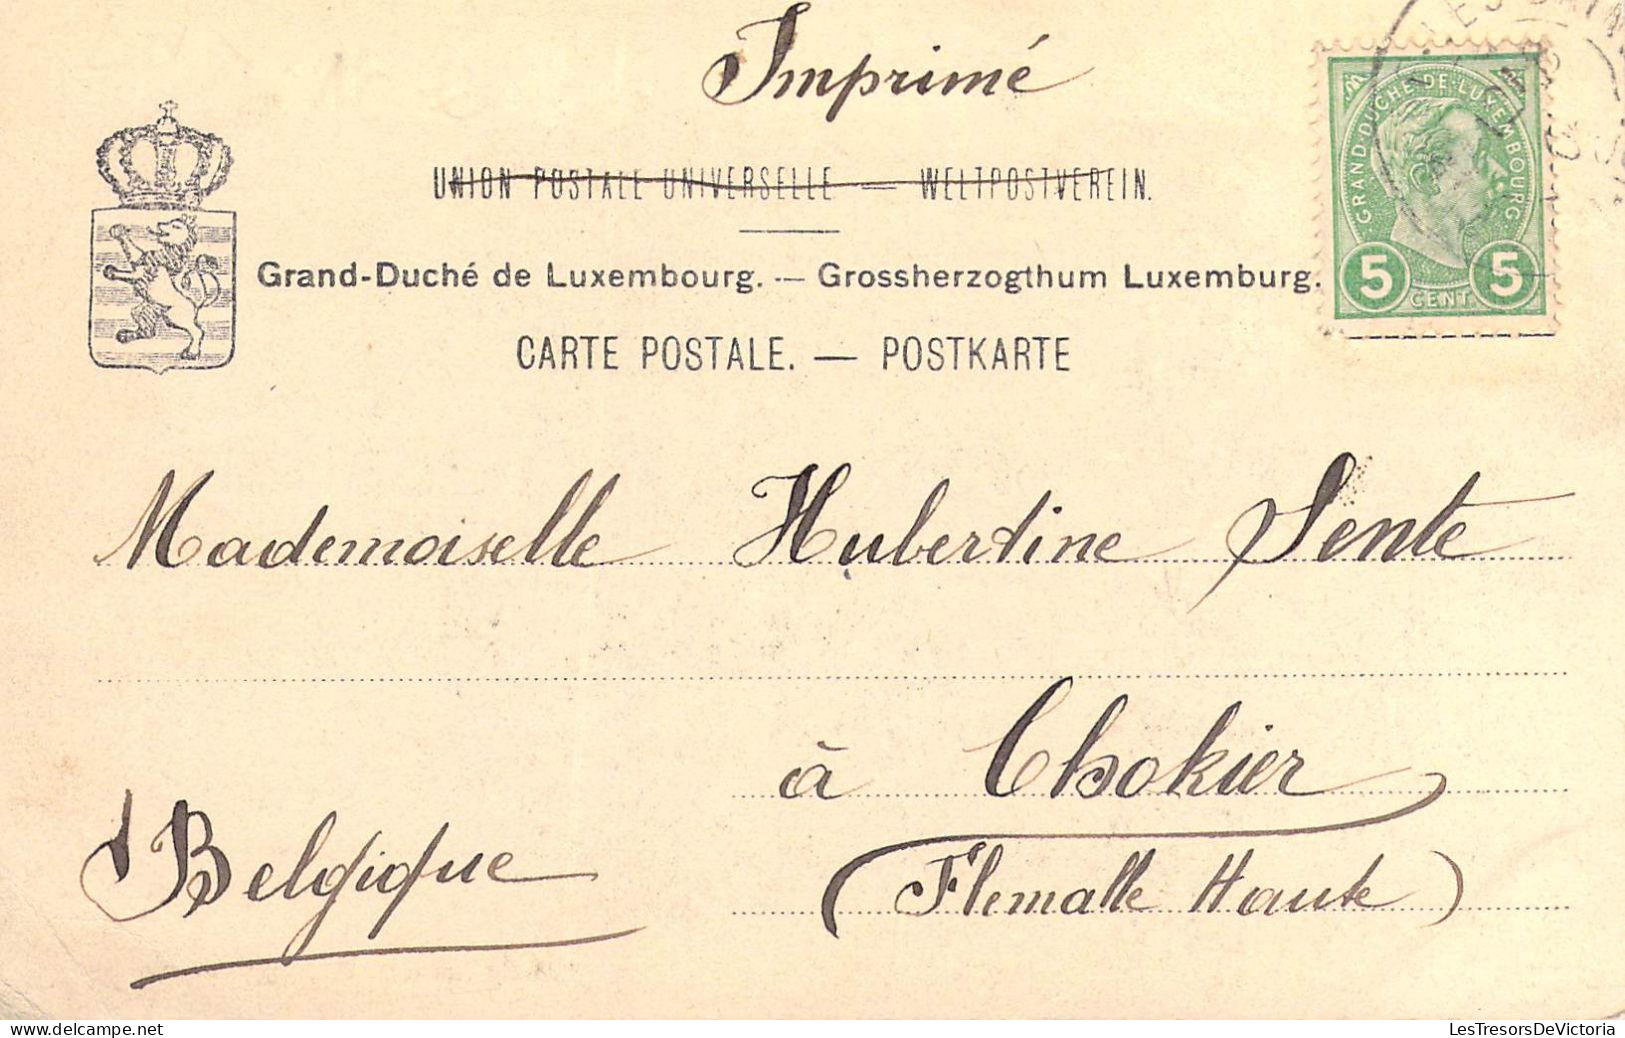 Imprimé
UNION POSTALE UNIVERSELLE — WELTPOSTVEREIN.
GRAND-DUCHÉ-DE-LUXEMBOURG
5 CENT. 5
Grand-Duché de Luxembourg. — Grossherzogthum Luxemburg.
CARTE POSTALE. — POSTKARTE
Mademoiselle Hubertine Sente
à Chokier
Belgique
(Flemalle Haute)
LesTresorsDeVictoria